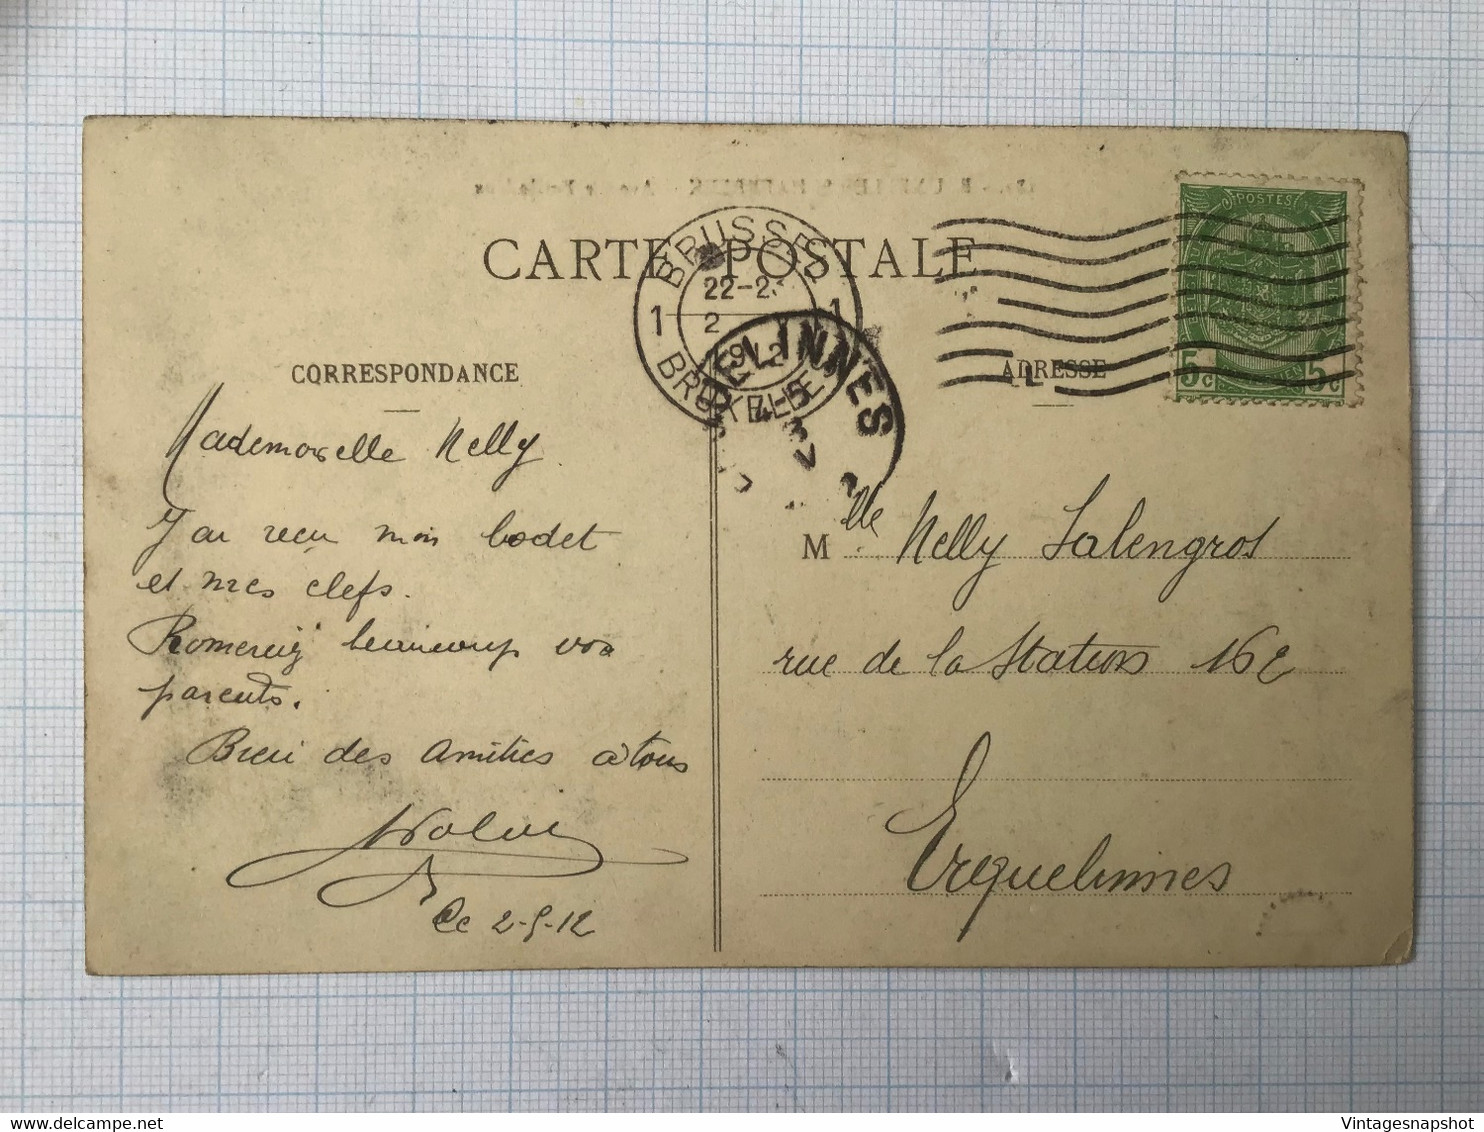 CARTE POSTALE
BRUSSEL
22-23
1 2 1
BRUXELLES
ELINNES
POSTES
5c 5c
CORRESPONDANCE
ADRESSE
Mademoiselle Nelly
J'ai reçu mon bodet
et mes clefs.
Remerciez beaucoup vos
parents.
Bien des amitiés à tous
Ce 2-5-12
Mlle Nelly Salengros
rue de la Station 162
Erquelinnes
Vintagesnapshot